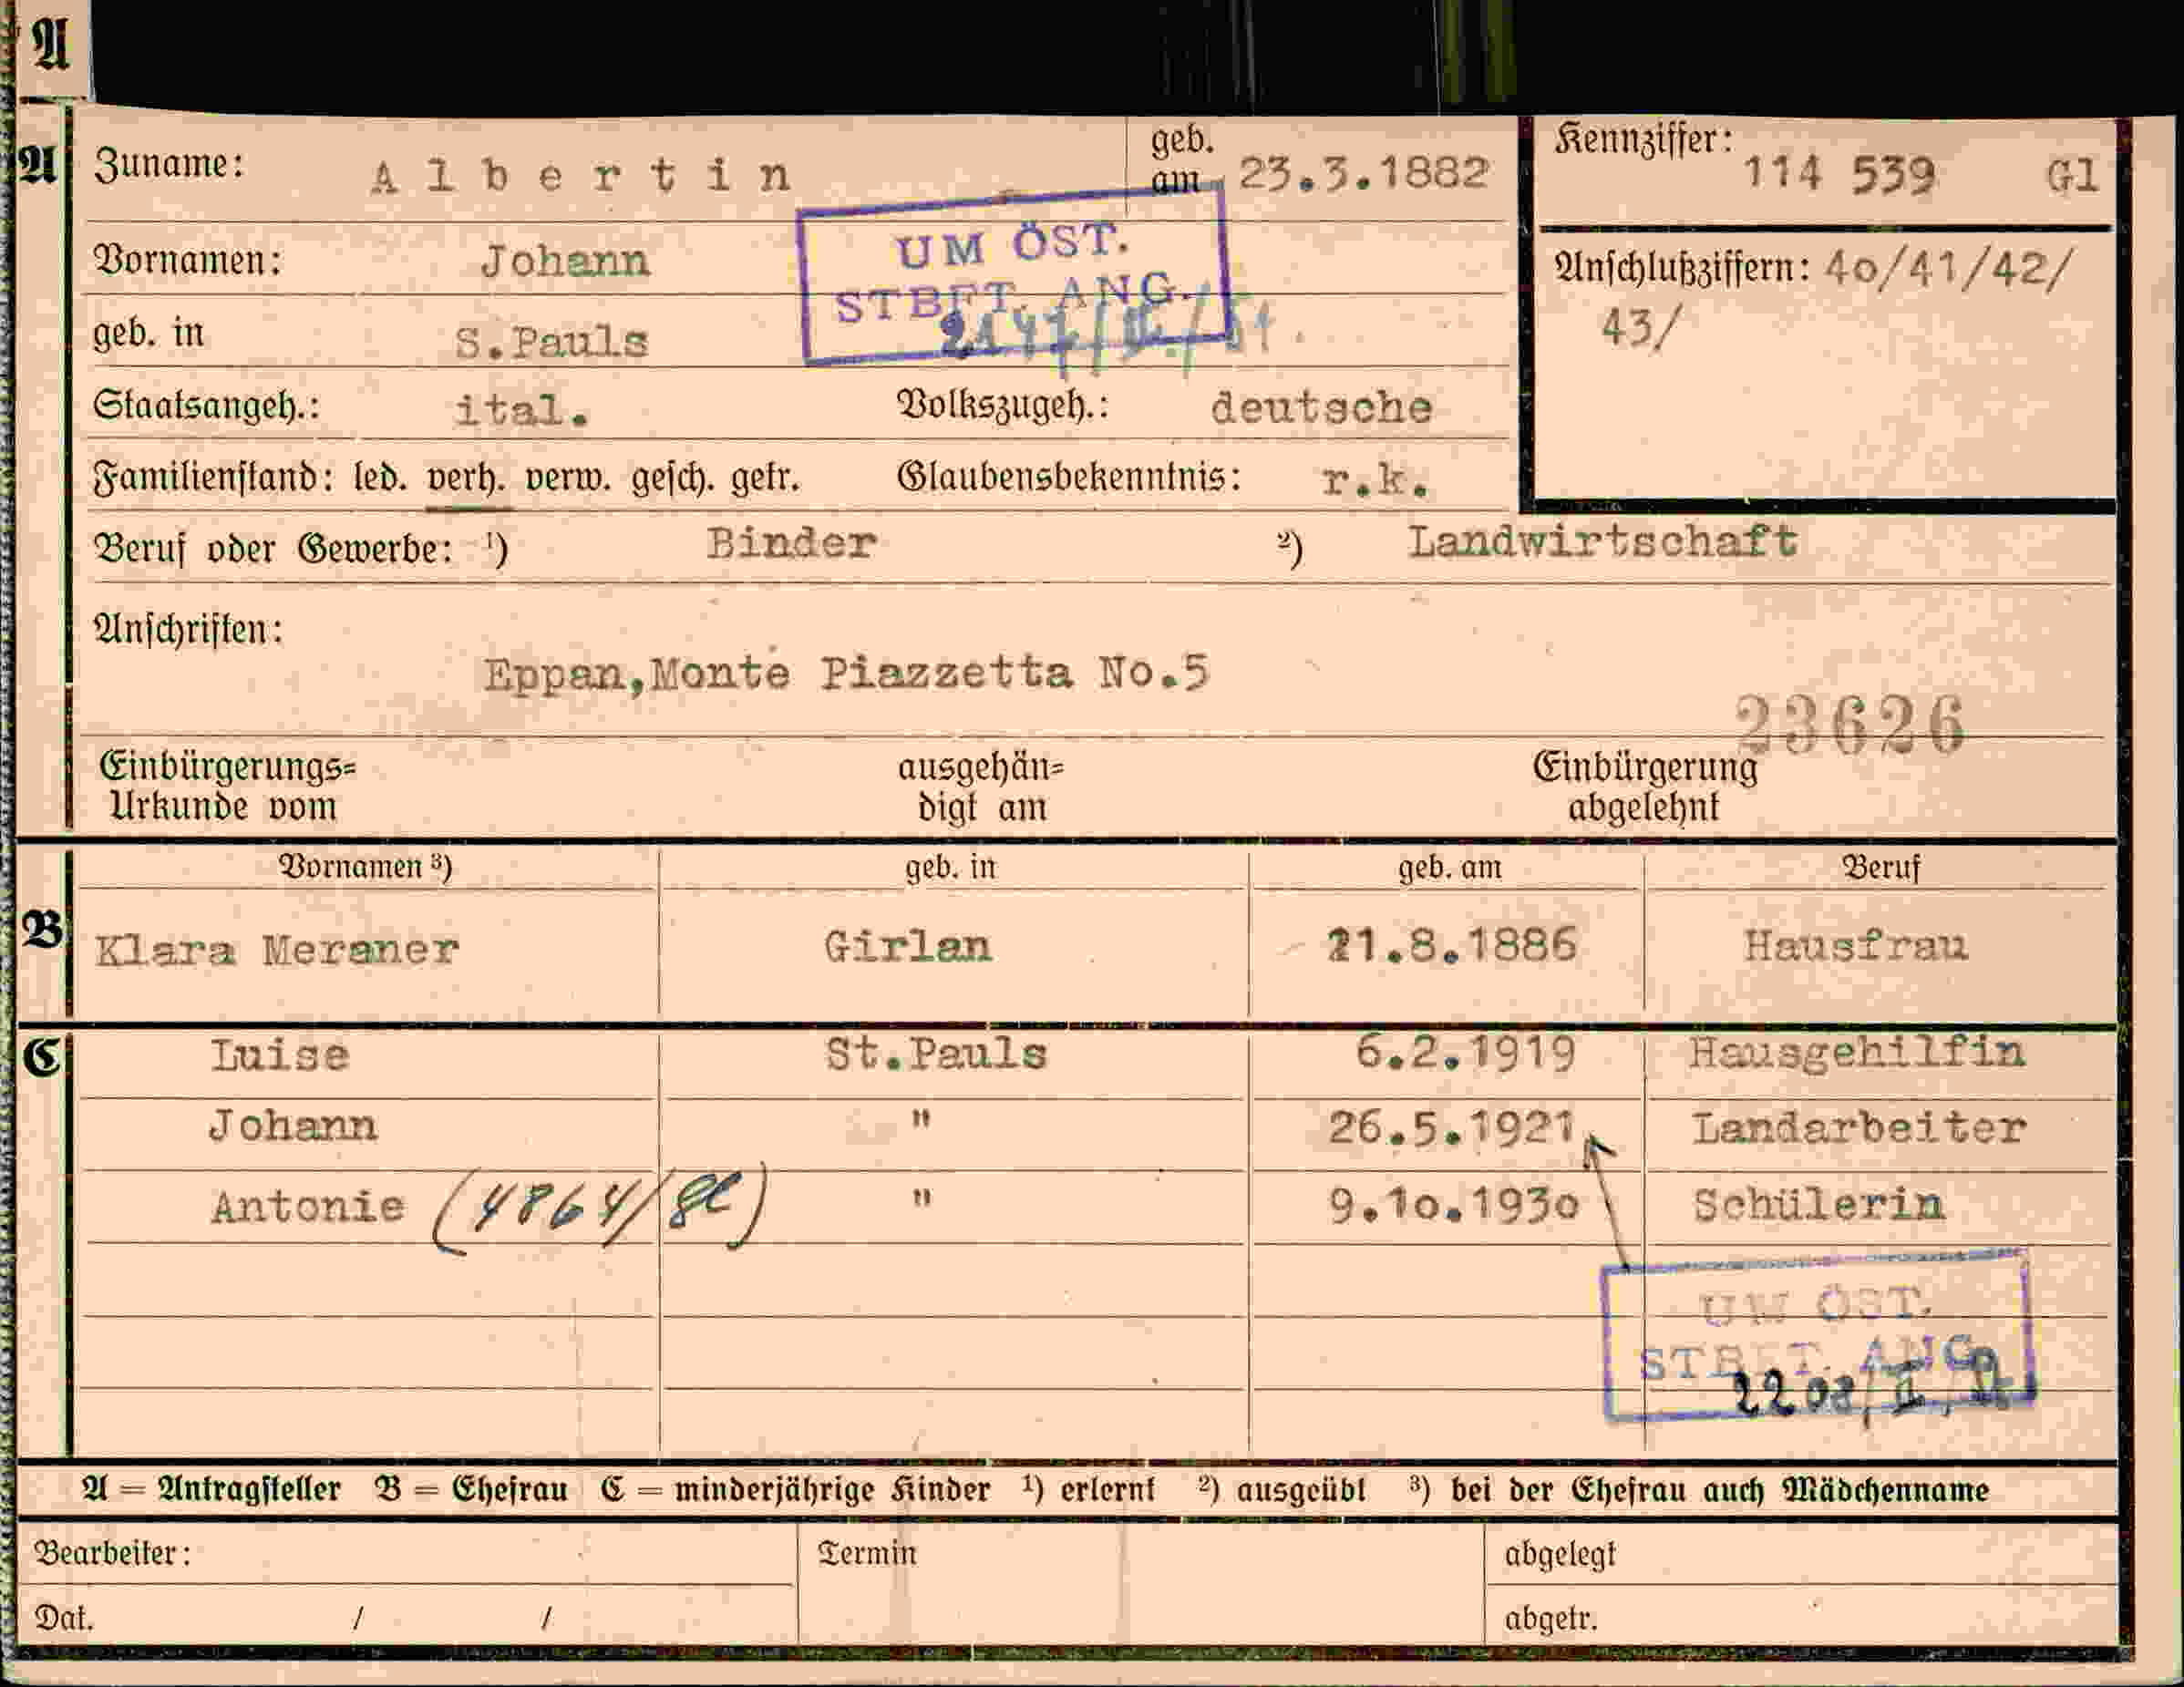 A
A
Zuname: Albertin geb. am 23.3.1882
Kennziffer: 114 539 Gl
UM ÖST.
STBFT. ANG.
Vornamen: Johann
Anschlußziffern: 40/41/42/
43/
geb. in S.Pauls
Staatsangeh.: ital. Volkszugeh.: deutsche
Familienstand: led. verh. verw. gesch. getr. Glaubensbekenntnis: r.k.
Beruf oder Gewerbe: ¹) Binder ²) Landwirtschaft
Anschriften:
Eppan,Monte Piazzetta No.5
23626
Einbürgerungs= Urkunde vom
ausgehän= digt am
Einbürgerung abgelehnt
Vornamen ³) geb. in geb. am Beruf
B Klara Meraner Girlan 21.8.1886 Hausfrau
C Luise St.Pauls 6.2.1919 Hausgehilfin
Johann " 26.5.1921 Landarbeiter
Antonie " 9.10.1930 Schülerin
UM ÖST.
STBFT. ANG.
A = Antragsteller B = Ehefrau C = minderjährige Kinder ¹) erlernt ²) ausgeübt ³) bei der Ehefrau auch Mädchenname
Bearbeiter: Termin abgelegt
Dat. / / abgetr.